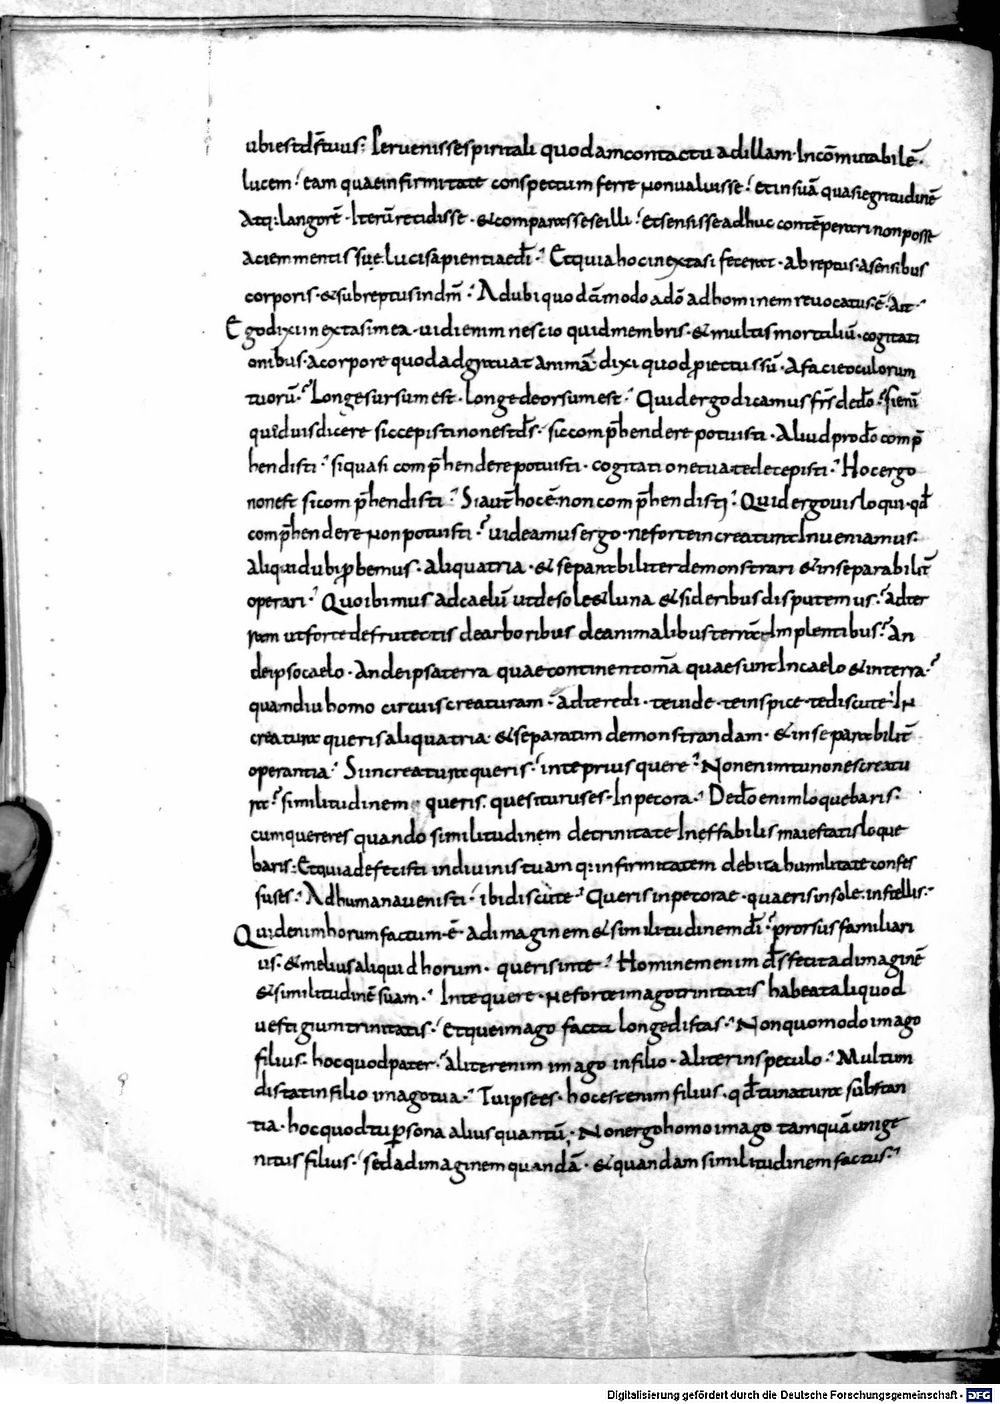 ubi est ds̄ tuus; Peruenisse spiritali quodam contactu ad illam · Incōmutabilē ·
lucem ; eam quae infirmitate conspectum ferre non ualuisse ; et in suā quasi egritudinē
Atq; langorē · Iterū recidisse · & comparasse se illi ; Et sensisse adhuc contēperari non posse
aciem mentis suę · luci sapientiae dī ; Et quia hoc in extasi fecerat · abreptus · a sensibus
corporis · & subreptus in dm̄ ; Ad ubi quodāmodo a dō ad hominem reuocatus · ē · Ait ·
Ego dixi in extasi mea · uidi enim nescio quid membris · & multis mortaliū · cogitati
onibus · a corpore quod adgrauat animā · dixi quod p̄iectus sū · A facie oculorum
tuorū ; Longe sursum est · longe deorsum est ; Quid ergo dicamus frs̄ de dō · si enī
quid uis dicere si cepisti non est ds̄ · si comp̄hendere potuisti · Aliud pro dō comp̄
hendisti ; si quasi comp̄hendere potuisti · cogitatione tua te decepisti ; Hoc ergo
non est si comp̄hendisti ; Si aut̄ hoc ē · non comp̄hendisti ; Quid ergo uis loqui · qd̄
comp̄hendere non potuisti ; uideamus ergo · ne forte in creatura Inueniamus ·
aliquid ubi p̱bemus · aliqua tria · & separabiliter demonstrari & inseparabilit̄
operari ; Quo ibimus ad caelū ut de sole & luna & sideribus disputemus ; ad ter
ram ut forte de frutectis de arboribus de animalibus terrā Implentibus ; An
de ipso caelo · An de ipsa terra quae continent om̄a quae sunt In caelo & in terra ·
quamdiu homo circuis creaturam · ad te redi · te uide · te inspice · te discute In
creatura queris aliqua tria · & separatim demonstrandam · & inseparabilit̄
operantia ; Si in creatura queris ; in te prius quere ; Non enim tu non es creatu
ra ; similitudinem queris · quesiturus es In pecora ; De dō enim loquebaris ·
cum quereres quando similitudinem de trinitate Ineffabilis maiestatis loque
baris · Et quia defecisti in diuinis tuam q; infirmitatem debita humilitate confes
sus es ; Ad humana uenisti ; ibi discute ; Queris in pecorae · quaeris in sole · in stellis ·
Quid enim horum factum · ē · ad imaginem & similitudinem dī ; prorsus familiari
us · & melius aliquid horum · queris in te ; Hominem enim ds̄ fecit ad imaginē
& similitudinē suam ; In te quere · ne forte imago trinitatis habeat aliquod
uestigium trinitatis ; Et que imago facta longe distas ; Non quomodo imago
filius · hoc quod pater ; aliter enim imago in filio · aliter in speculo ; Multum
distat in filio imago tua ; Tu ipse es · hoc est enim filius · qd̄ tu natura substan
tia · hoc quod tu p̱sona alius quantū · Non ergo homo imago tamquā unige
nitus filius ; sed ad imaginem quandā · & quandam similitudinem factus ;
Digitalisierung gefördert durch die Deutsche Forschungsgemeinschaft - DFG